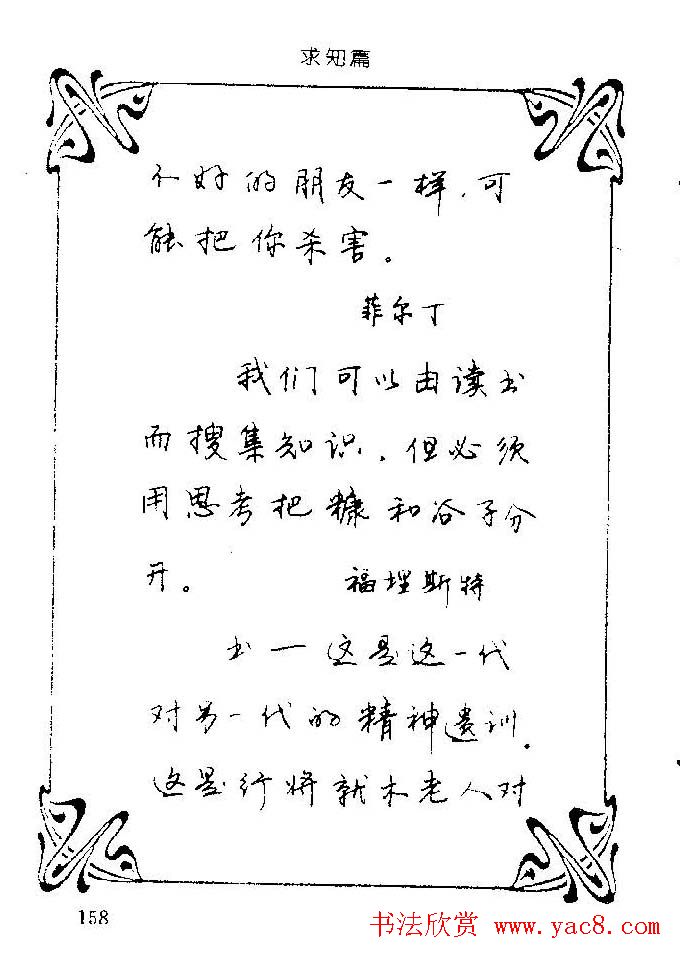 求知篇
不好的朋友一样，可
能把你杀害。
菲尔丁
我们可以由读书
而搜集知识，但必须
用思考把糠和谷子分
开。 福埋斯特
书一这是这一代
对另一代的精神遗训，
这是行将就木老人对
158
书法欣赏 www.yac8.com